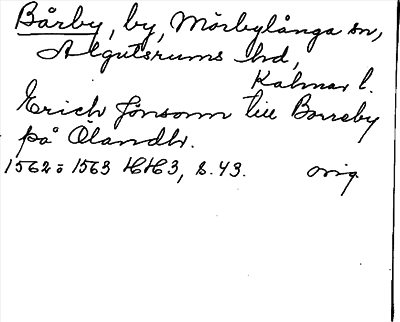 Bårby, by, Mörbylånga sn,
Algutsrums hd,
Kalmar l.
Erich Jönsonn till Borreby
på Ölandh.
1562-1563 HH3, s. 43. orig.